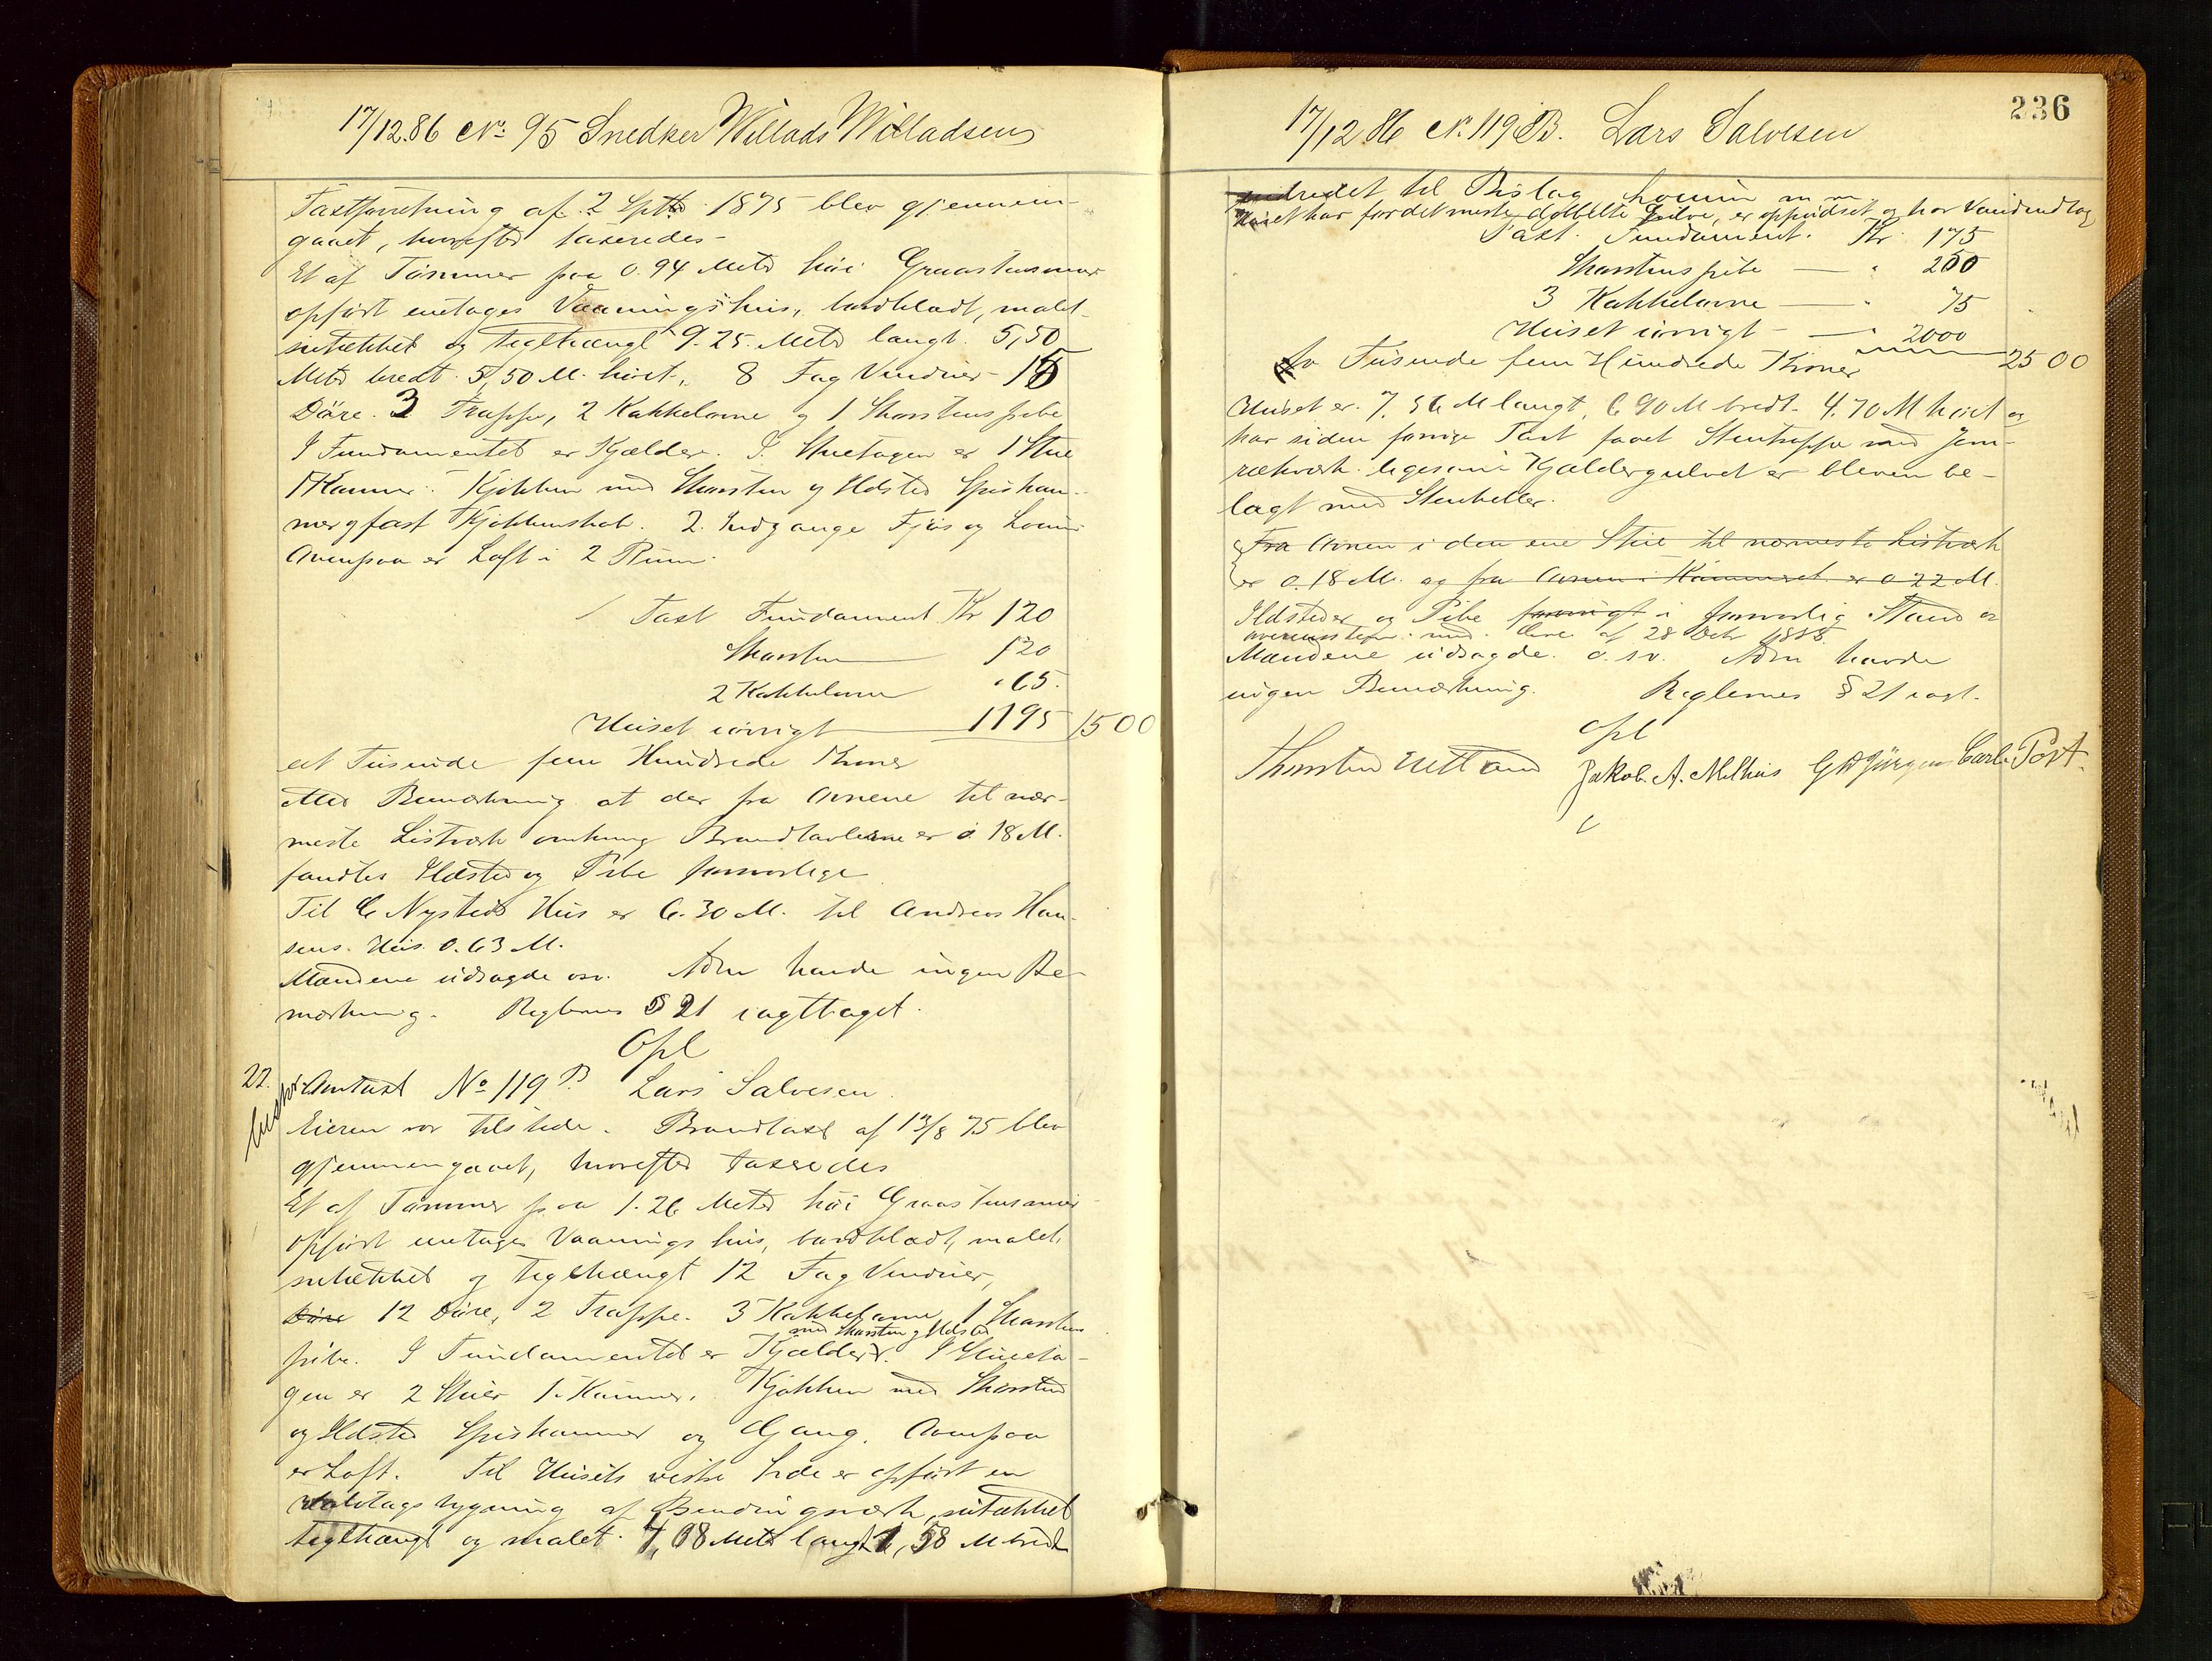 17/12.86 No. 95 Snedker Willads Willadsen
Taxtforretning af 2 Septb 1875 blev gjennem-
gaaet, hvorefter taxeredes
Et af Tømmer paa 0.94 Meter høi Graastensmur
opført enetages Vaaningshus, bordklædt, malet
nætækket og teglhængt 9.25 Meter langt. 5,50
Meter bredt. 5,50 M. høiet, 8 Fag Vinduer - 15
Döre. 3 Trappe, 2 Kakkelovne og 1 Skorstenspibe
I Fundamentet er Kjælder. I Stuetagen er 1 Stue
1 Kammer. Kjøkken med Skorsten og Ildsted Spiskam-
mer og fast Kjøkkenskab. 2 Indgange Fjøs og Locum
Ovenpaa er Loft i 2 Rum.
Taxt Fundament Kr 120
Skorsten 120
2 Kakkelovne 65.
Huset iøvrigt 1195 1500
et Tusinde fem Hundrede Kroner
Med Bemærkning at der fra Ovnene til nær-
meste Listværk omkring Brandtavlerne er 0.18 M.
fandtes Ildsted og Pibe forsvarlige
Til C Nysteds Hus er 6.30 M. til Andreas Han-
sens Hus 0.63 M.
Mændene udsagde osv. Adm havde ingen Be-
mærkning. Reglernes § 21 iagttaget.
Opl
22. Omtaxt No 119 B Lars Salvesen.
Eieren var tilstede. Brandtaxt af 13/8 75 blev
gjennemgaaet, hvorefter taxeredes
Et af Tømmer paa 1.26 Meter høi Graastensmur
opført enetages Vaaningshus, bordklædt, malet
nætækket og teglhængt 12 Fag Vinduer,
Döre 12 Döre, 2 Trappe. 3 Kakkelovne, 1 Skorstens
med Skorsten og Ildsted
pibe. I Fundamentet er Kjælder. I Stueta-
gen er 2 Stuer 1 Kammer, Kjøkken med Skorsten
og Ildsted Spiskammer og Gang. Ovenpaa
er Loft. Til Husets vestre Side er opført en
Halvtagsbygning af Bindingsværk, nætækket
teglhængt og malet. 7,08 Meter langt 1,58 M bredt
236
17/12 86 No. 119 B. Lars Salvesen
indredet til Bislag Locum m m
Huset har for det meste dobbelte Gulve, er oppudset og har Vandindlag
Taxt. Fundament. Kr 175
Skorstenspibe " 250
3 Kakkelovne " 75
Huset iøvrigt " 2000
to Tusinde fem Hundrede Kroner 2500
Huset er. 7.56 M langt, 6.90 M bredt. 4.70 M høiet og
har siden forrige Taxt faaet Stentrappe med Jern-
rækværk ligesom Kjældergulvet er bleven be-
lagt med Stenheller.
Fra Ovnen i den ene Stue til nærmeste Listværk
er 0.18 M. og fra Ovnen i Kammeret er 0.22 M.
Ildsteder og Pibe forøvrigt i forsvarlig Stand og
overensstem. med Lov af 28 Oktr 1885
Mændene udsagde o.s.v. Adm havde
ingen Bemærkning. Reglernes § 21 iagt.
Opl
Jakob A. Melhus Carl Post